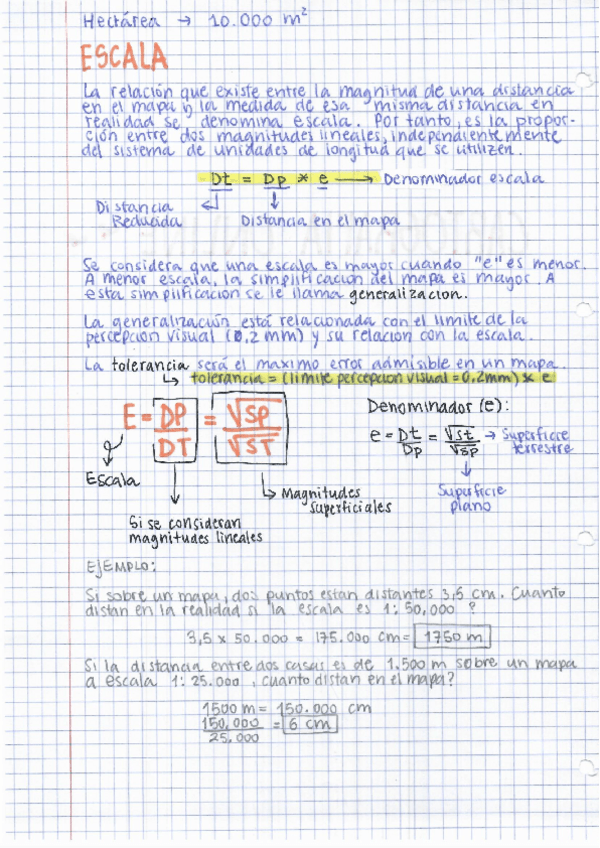 Hectárea → 10.000 m²
ESCALA
La relación que existe entre la magnitud de una distancia
en el mapa y la medida de esa misma distancia en
realidad se denomina escala. Por tanto, es la propor-
ción entre dos magnitudes lineales, independientemente
del sistema de unidades de longitud que se utilizen.
Dt = Dp * e → Denominador escala
Distancia
Reducida
Distancia en el mapa
Se considera que una escala es mayor cuando "e" es menor.
A menor escala, la simplificación del mapa es mayor. A
esta simplificación se le llama generalización.
La generalización está relacionada con el límite de la
percepción visual (0,2 mm) y su relación con la escala.
La tolerancia será el maximo error admisible en un mapa.
↳ tolerancia = (limite percepción visual = 0,2mm) * e
E = DP/DT = √SP/√ST
Denominador (e):
e = Dt/Dp = √St/√Sp → Superficie terrestre
Escala
Superficie
plano
Magnitudes
superficiales
Si se consideran
magnitudes lineales
EJEMPLO:
Si sobre un mapa, dos puntos estan distantes 3,5 cm. Cuanto
distan en la realidad si la escala es 1:50,000 ?
3,5 x 50.000 = 175.000 cm = 1750 m
Si la distancia entre dos casas es de 1.500 m sobre un mapa
a escala 1:25.000 , cuanto distan en el mapa?
1500 m = 150.000 cm
150,000 = 6 cm
25.000